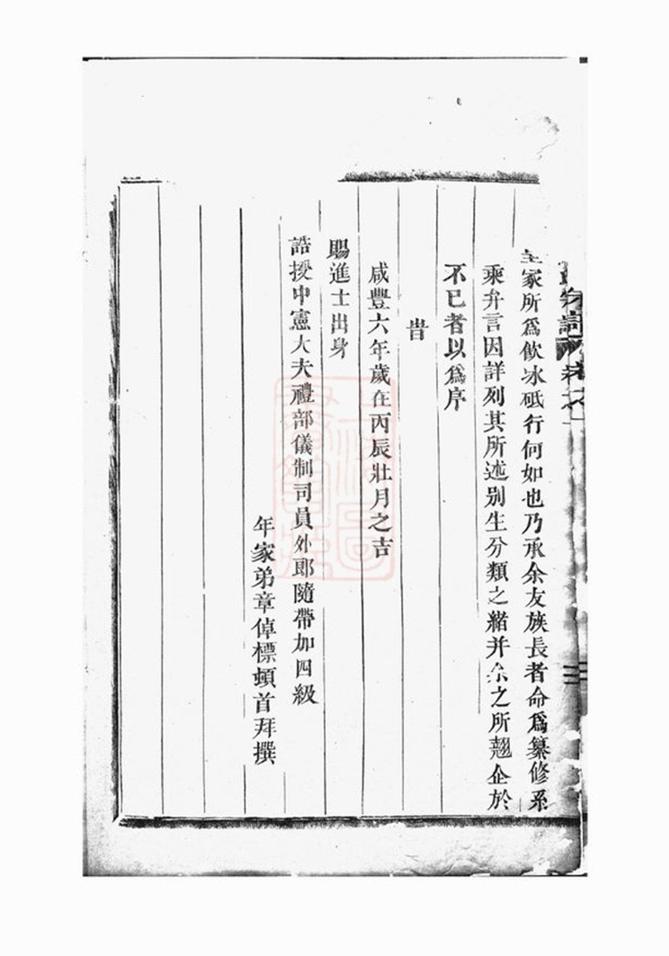 家所爲飲冰砥行何如也乃承余友族長者命爲纂修系
乘弁言因詳列其所述別生分類之緒并余之所翹企於
不已者以爲序
旹
咸豐六年歲在丙辰壯月之吉
賜進士出身
誥授中憲大夫禮部儀制司員外郎隨帶加四級
年家弟章倬標頓首拜撰